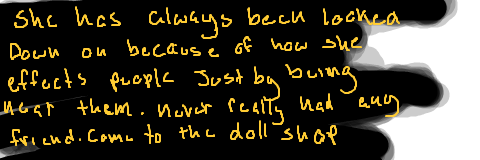 She has always been looked
Down on because of how she
effects people Just by being
near them. never really had any
friend. Come to the doll shop